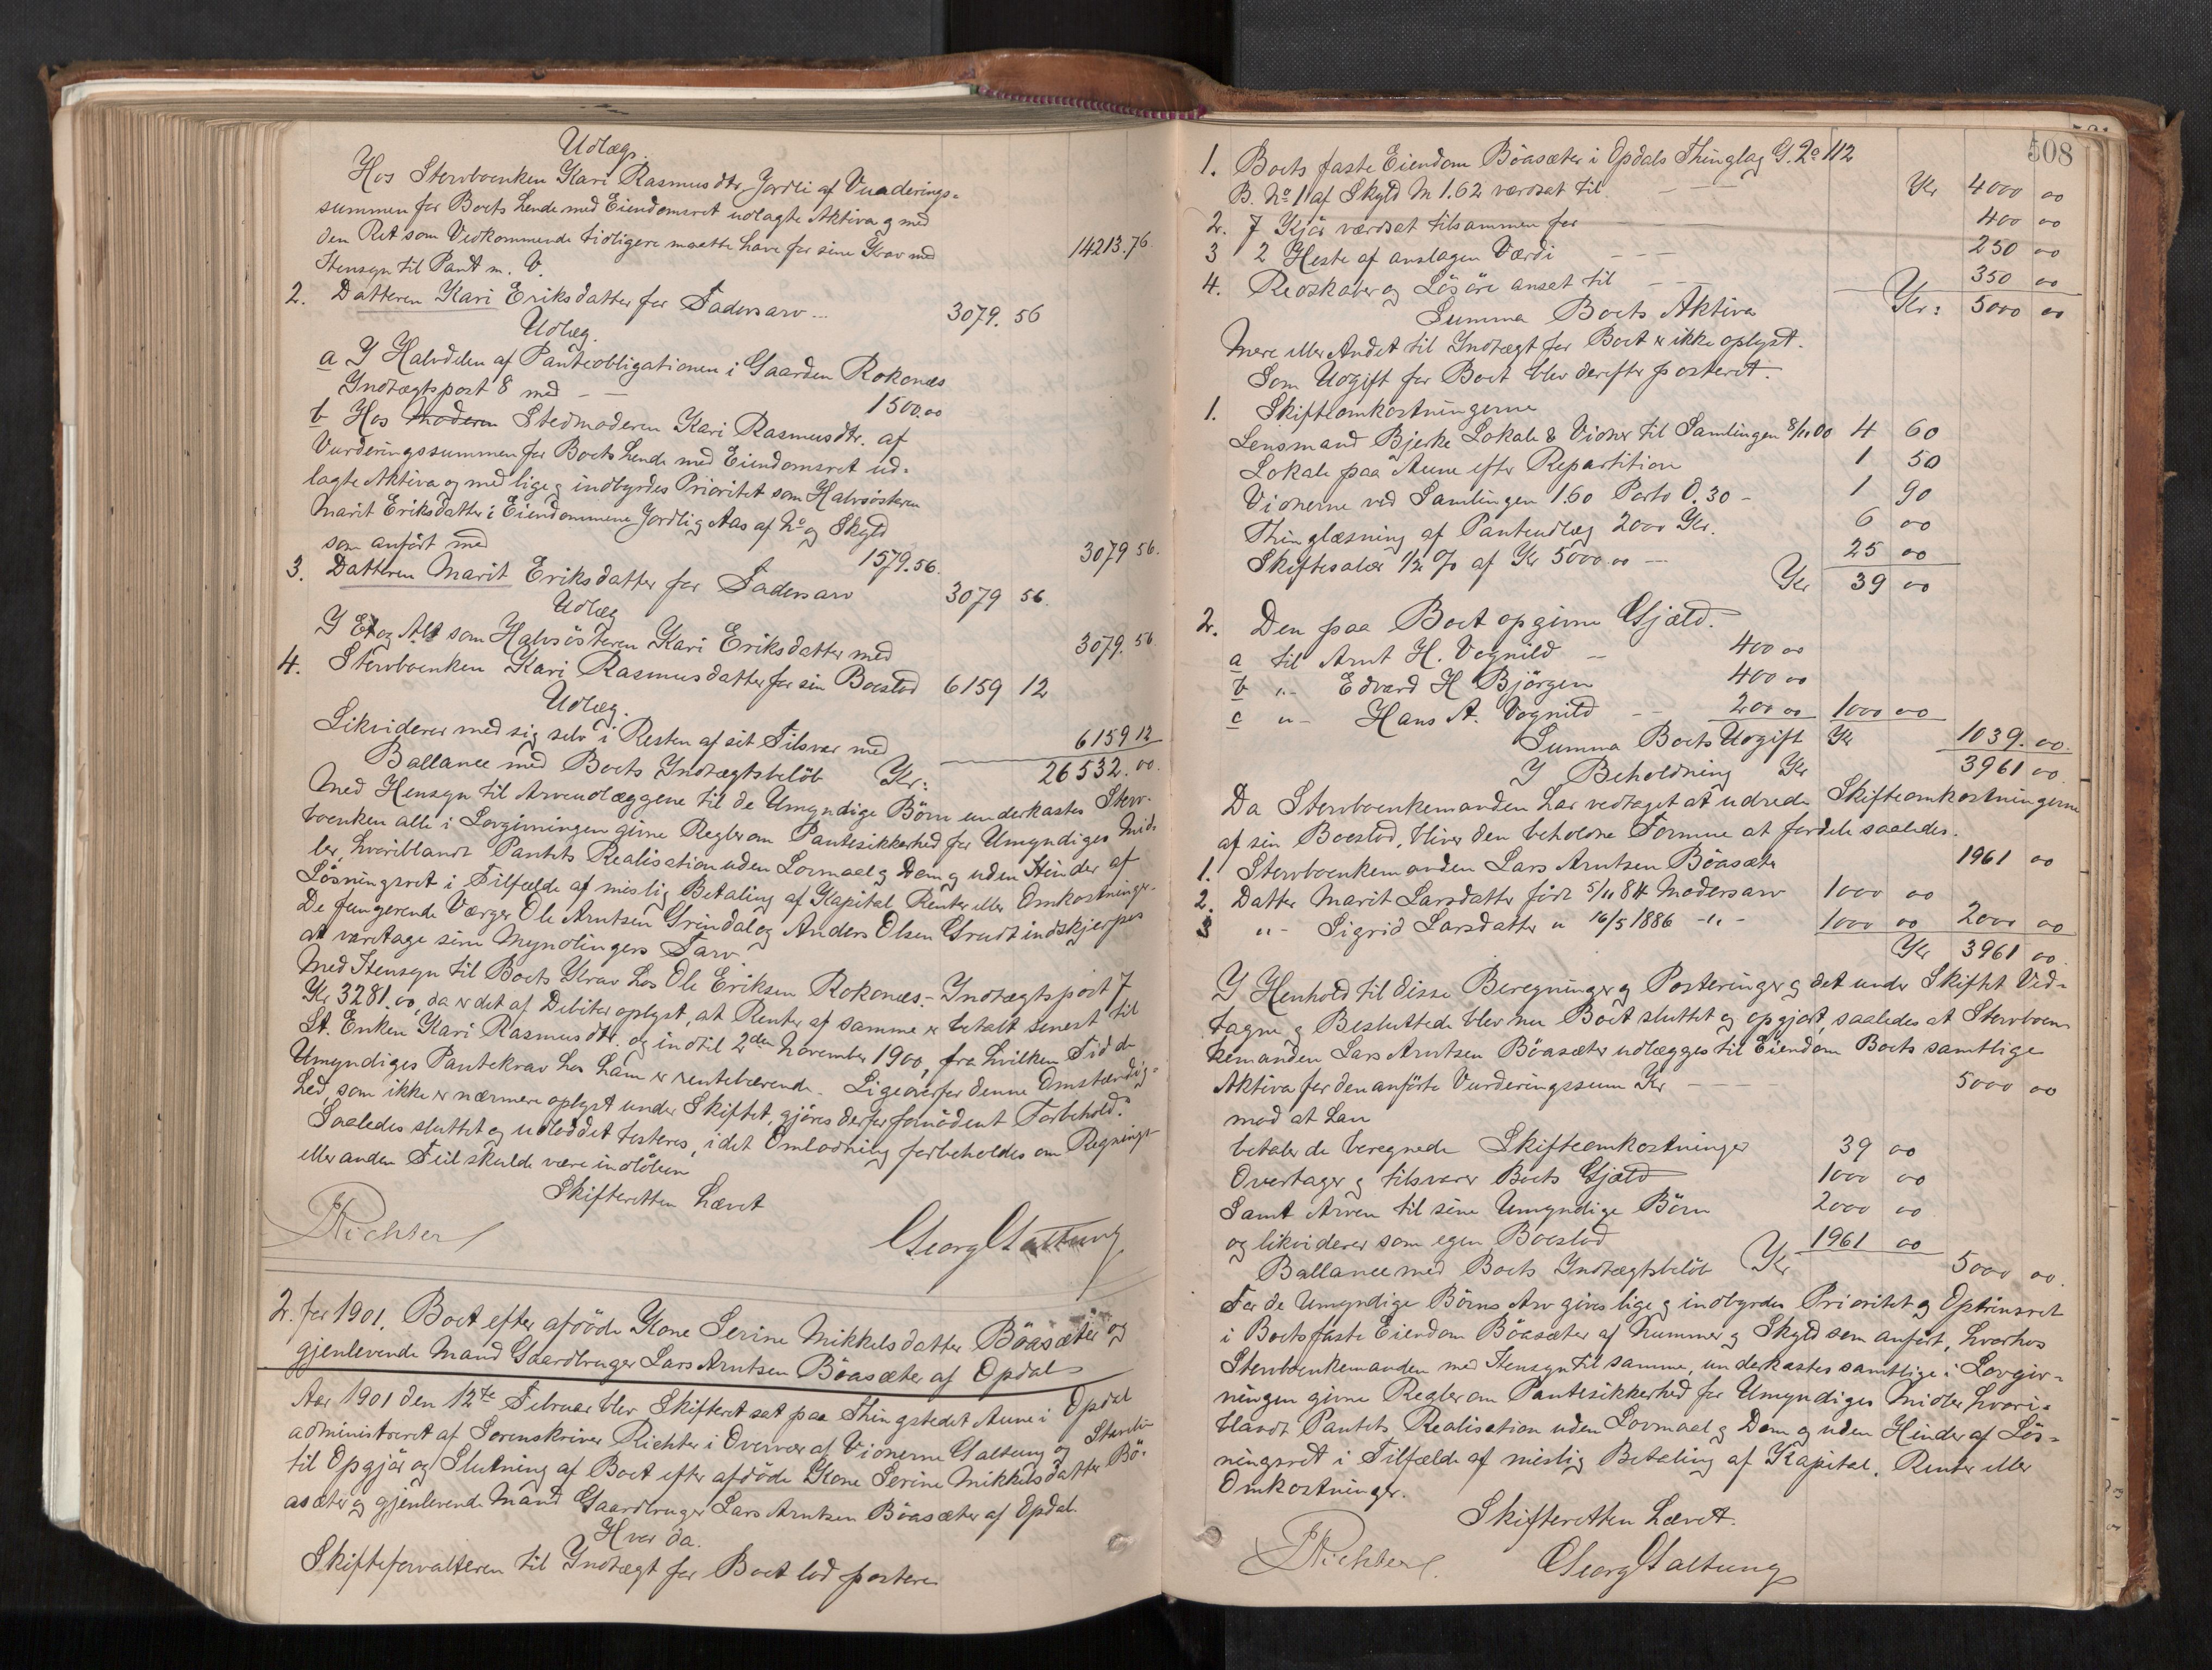 Udlæg.
Hos Stervboenken Kari Rasmusdtr. Jordli af Vurderings-
summen for Boets hende med Eiendomsret udlagte Aktiva og med
den Ret som Vedkommende tidligere maatte have for sine Krav med
Hensyn til Pant m. V. 14213.76.
2. Datteren Kari Eriksdatter for Fadersarv ... 3079. 56
Udlæg.
a I Halvdelen af Panteobligationen i Gaarden Rokones
Indtægtspost 8 med – – 1500.00
b Hos Moderen Stedmoderen Kari Rasmusdtr. af
Vurderingssummen for Boets hende med Eiendomsret ud-
lagte Aktiva og med lige og indbyrdes Prioritet som Halvsösteren
Marit Eriksdatter i Eiendommene Jordli og Aas af No og Skyld
som anfört med 1579.56. 3079 56.
3. Datteren Marit Eriksdatter for Fadersarv 3079 56.
Udlæg
I Et og Alt som Halvsösteren Kari Eriksdatter med 3079.56
4. Stervboenken Kari Rasmusdatter for sin Boeslod 6159 12
Udlæg.
Likviderer med sig selv i Resten af sit Tilsvar med 6159 12
Ballance med Boets Indtægtsbelöb Kr: 26532.00.
Med Hensyn til Arveudlæggene til de Umyndige Börn underkastes Sterv-
boenken alle i Lovgivningen givne Regler om Pantesikkerhed for Umyndiges Mid-
ler, hvoriblandt Pantets Realisation uden Lovmaal og Dom og uden Hinder af
Lösningsret i Tilfælde af mislig Betaling af Kapital Renter eller Omkostninger.
De fungerende Værger Ole Arntsen Grindal og Anders Olsen Gruot indskjerpes
at varetage sine Myndlingers Tarv.
Med Hensyn til Boets Krav hos Ole Eriksen Rokones.- Indtægtspost 7
Kr 3281.00, da er det af Debitor oplyst, at Renter af samme er betalt senest til
St. Enken Kari Rasmusdtr. og indtil 2den November 1900, fra hvilken Tid de
Umyndiges Pantekrav hos ham er rentebærende. Ligeoverfor denne Omstændig-
hed, som ikke er nærmere oplyst under Skiftet, gjöres derfor fornödent Forbehold.
Saaledes sluttet og udloddet testeres, idet Omlodning forbeholdes om Regnings-
eller anden Feil skulde være indlöben
Skifteretten hævet
Richter Georg Galtung
2. for 1901. Boet efter afdöde Kone Serine Mikkelsdatter Böasæter og
gjenlevende Mand Gaardbruger Lars Arntsen Böasæter af Opdal
Aar 1901 den 12te Februar blev Skifteret sat paa Thingstedet Aune i Opdal
administreret af Sorenskriver Richter i Overvær af Vidnerne Galtung og
til Opgjör og Slutning af Boet efter afdöde Kone Serine Mikkelsdatter Bö-
asæter og gjenlevende Mand Gaardbruger Lars Arntsen Böasæter af Opdal.
Hvor da.
Skifteforvalteren til Indtægt for Boet lod postere
508
1. Boets faste Eiendom Böasæter i Opdals Thinglag G. No 112
B. No 1 af Skyld M 1.62 værdsat til – – Kr 4000 00
2. 7 Kjör værdsat tilsammen for 400 00
3 2 Heste af anslagen Værdi – – – 250 00
4. Redskaber og Lösöre anset til – – 350 00
Summa Boets Aktiva Kr: 5000 00
Mere eller Andet til Indtægt for Boet er ikke oplyst.
Som Udgift for Boet blev derefter posteret.
1. Skifteomkostningerne
Lensmand Bjerke Lokale & Vidner til Samlingen 8/11 00 4 60
Lokale paa Aune efter Repartition 1 50
Vidnerne ved Samlingen 1.60 Porto 0.30 – 1 90
Thinglæsning af Panteudlæg 2000 Kr. 6 00
Skiftesalær 1/2 % af Kr 5000.00 – 25 00
Kr 39 00
2. Den paa Boet opgivne Gjæld.
a til Arnt H. Vognild – 400 00
b „- Edvard H Björgen 400 00
c „- Hans A. Vognild – – 200 00 1000 00
Summa Boets Udgift Kr 1039.00.
I Beholdning Kr 3961 00.
Da Stervboenkemanden har vedtaget at udrede Skifteomkostningerne
af sin Boeslod, bliver den beholdne Formue at fordele saaledes.
1. Stervboenkemanden Lars Arntsen Böasæter 1961 00
2. Datter Marit Larsdatter född 5/11 84 Modersarv 1000 00
3 „- Sigrid Larsdatter „ 16/5 1886 -„- 1000 00 2000 00
Kr 3961 00.
I Henhold til disse Beregninger og Posteringer og det under Skiftet Ved-
tagne og Besluttede blev nu Boet sluttet og opgjort, saaledes at Stervboen-
kemanden Lars Arntsen Böasæter udlægges til Eiendom Boets samtlige
Aktiva for den anförte Vurderingssum Kr 5000 00
mod at han
betaler de beregnede Skifteomkostninger 39 00
Overtager og tilsvarer Boets Gjæld 1000 00
Samt Arven til sine Umyndige Börn 2000 00
og likviderer som egen Boeslod 1961 00
Ballance med Boets Indtægtsbelöb Kr 5000 00.
For de Umyndige Börns Arv gives lige og indbyrdes Prioritet og Optrinsret
i Boets faste Eiendom Böasæter af Nummer og Skyld som anfört, hvorhos
Stervboenkemanden med Hensyn til samme, underkastes samtlige i Lovgiv-
ningen givne Regler om Pantesikkerhed for Umyndiges Midler hvori-
blandt Pantets Realisation uden Lovmaal og Dom og uden Hinder af Lös-
ningsret i Tilfælde af mislig Betaling af Kapital, Renter eller
Omkostninger.
Skifteretten hævet.
Richter. Georg Galtung